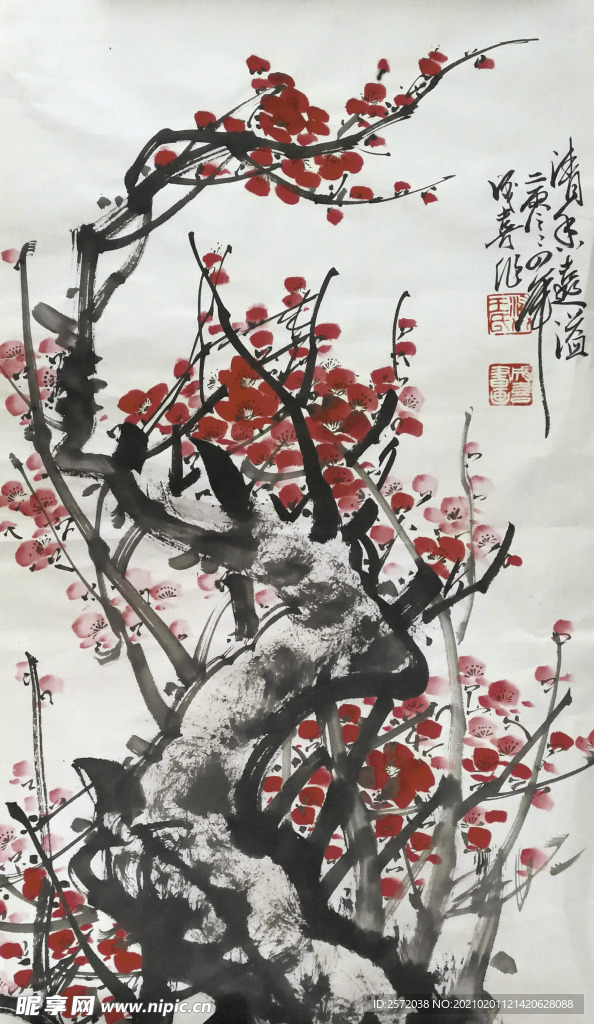 清香远溢
二零零四年
成喜作
成喜
书画
昵享网 www.nipic.cn
ID:2572038 NO:20210201121420628088